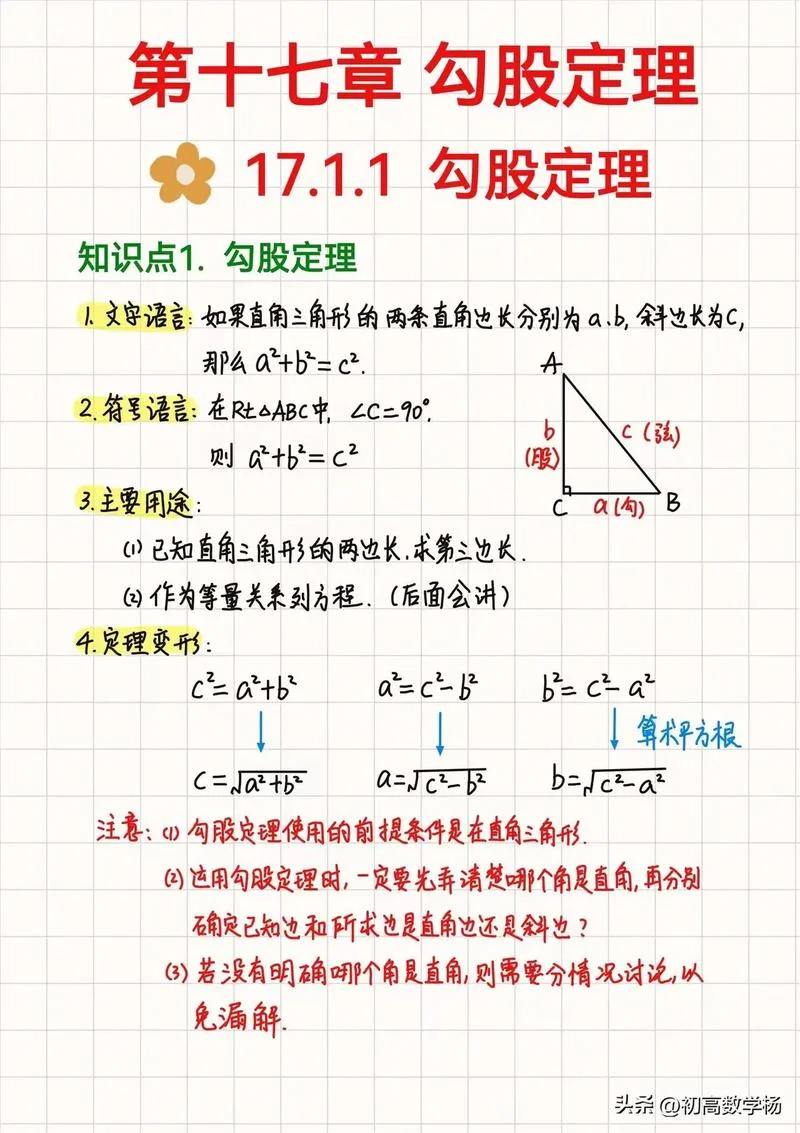 第十七章 勾股定理
17.1.1 勾股定理
知识点1. 勾股定理
1. 文字语言: 如果直角三角形的两条直角边长分别为a.b, 斜边长为C,
那么 a²+b²=c².
2. 符号语言: 在Rt△ABC中, ∠C=90°.
则 a²+b²=c²
A
b
(股)
c (弦)
C
a(勾)
B
3. 主要用途:
(1) 已知直角三角形的两边长.求第三边长.
(2) 作为等量关系列方程. (后面会讲)
4. 定理变形:
c²=a²+b² a²=c²-b² b²=c²-a²
算术平方根
c=√a²+b² a=√c²-b² b=√c²-a²
注意: (1) 勾股定理使用的前提条件是在直角三角形.
(2) 运用勾股定理时,一定要先弄清楚哪个角是直角,再分别
确定已知边和所求边是直角边还是斜边?
(3) 若没有明确哪个角是直角,则需要分情况讨论,以
免漏解.
头条 @初高数学杨